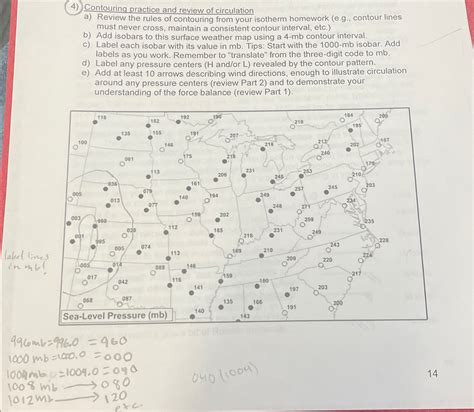 4) Contouring practice and review of circulation
a) Review the rules of contouring from your isotherm homework (e.g., contour lines
must never cross, maintain a consistent contour interval, etc.)
b) Add isobars to this surface weather map using a 4-mb contour interval.
c) Label each isobar with its value in mb. Tips: Start with the 1000-mb isobar. Add
labels as you work. Remember to "translate" from the three-digit code to mb.
d) Label any pressure centers (H and/or L) revealed by the contour pattern.
e) Add at least 10 arrows describing wind directions, enough to illustrate circulation
around any pressure centers (review Part 2) and to demonstrate your
understanding of the force balance (review Part 1).
116 162 193 210 184 200
135 155 191 207 195
100 146 214 212 202 187
091 175 218 246 179
113 206 231 245 253 210
036 161 257 345 203
005 079 140 194 249 234
013 077 248 271
003 159 202 259 235
001 112 165 216 231 249 228
995 005 074 189 210 243 224
005 089 146 209 220
017 042 114 159 217
116 141 180 197 203
068 087 135 166 191 200
140 143
Sea-Level Pressure (mb)
label lines
in mb!
996mb=996.0 = 960
1000 mb=1000.0 = 000
1004mb =1004.0 = 040
1008 mb → 080
1012mb → 120
etc.
040 (1004)
14